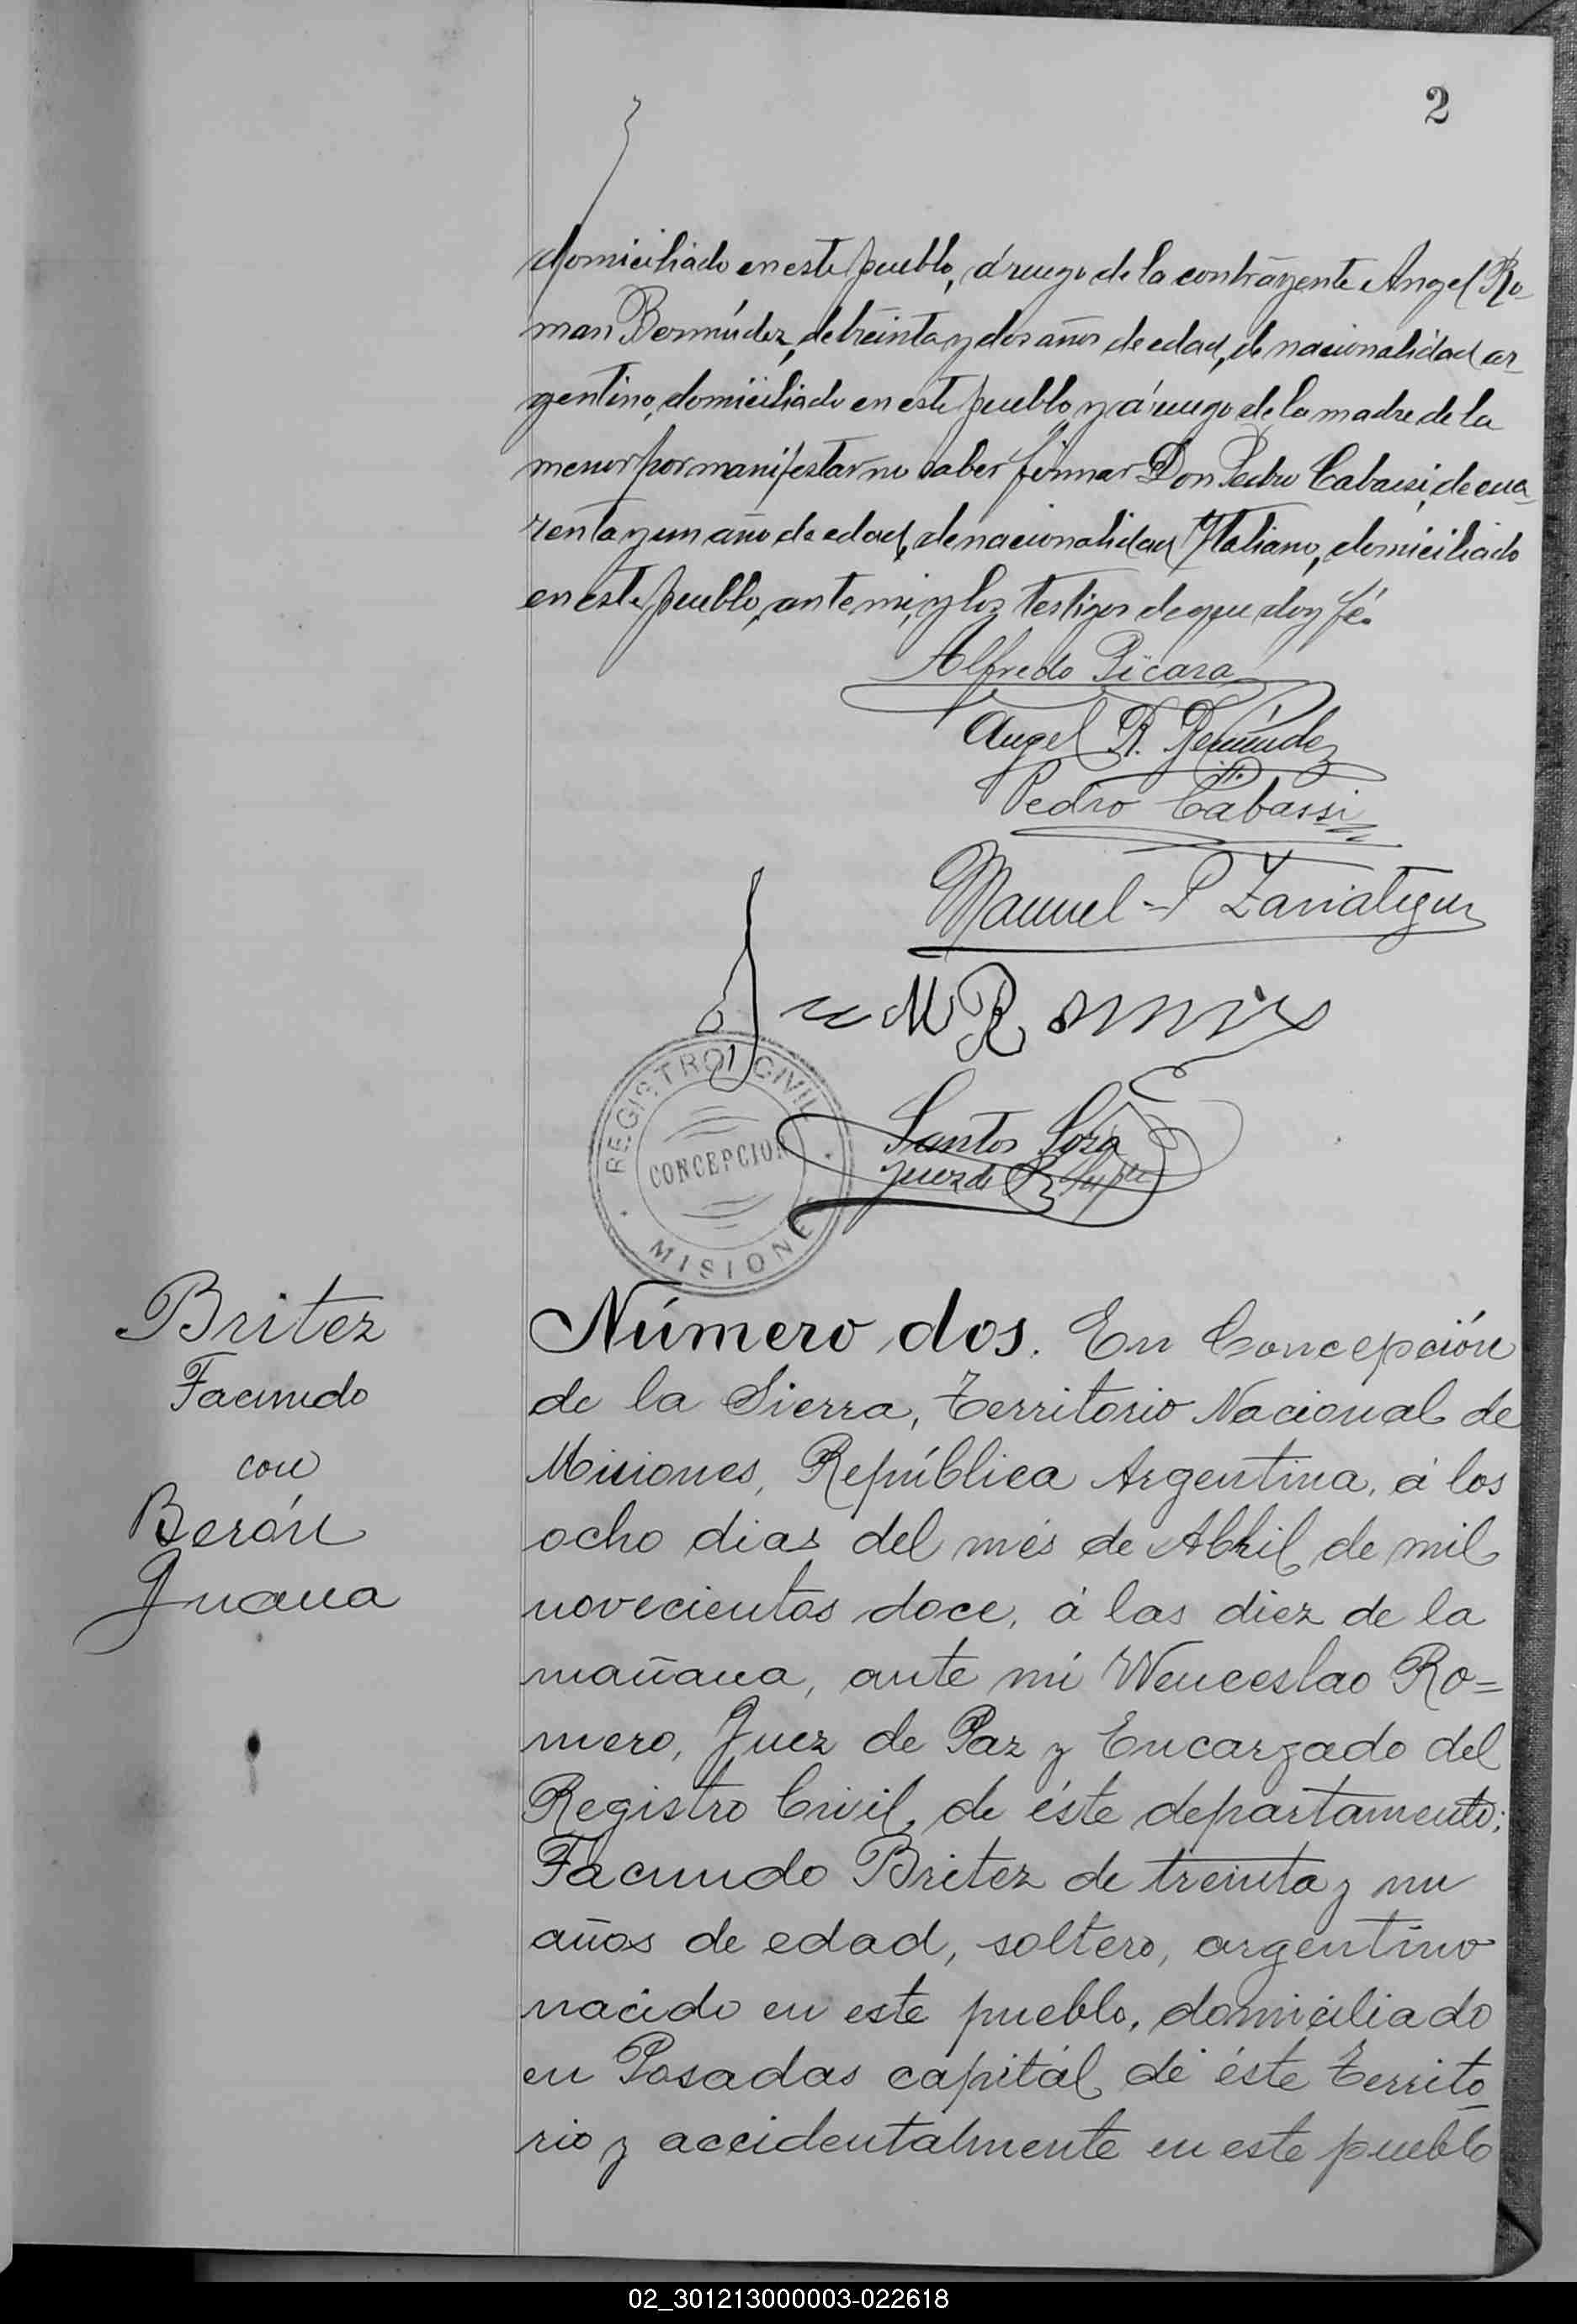 2
domiciliado en este pueblo, á ruego de la contrayente Angel Ro-
man Bermúdez, de treinta y dos años de edad, de nacionalidad ar-
gentino, domiciliado en este pueblo, y á ruego de la madre de la
menor por manifestar no saber firmar Don Pedro Cabassi, de cua-
renta y un año de edad, de nacionalidad Ytaliano, domiciliado
en este pueblo, ante mi, y los testigos de que doy fé.
Alfredo Picara
Angel R. Bermúdez
Pedro Cabassi
Manuel P
M R
REGISTRO CIVIL
CONCEPCION
MISIONES
Santos
Juez de P
Britez
Facundo
con
Berón
Juana
Número dos. En Concepción
de la Sierra, Territorio Nacional de
Misiones, República Argentina, á los
ocho dias del més de Abril de mil
novecientos doce, á las diez de la
mañana, ante mi Wenceslao Ro=
mero, Juez de Paz y Encargado del
Registro Civil de éste departamento;
Facundo Britez de treinta y un
años de edad, soltero, argentino
nacido en este pueblo, domiciliado
en Posadas capitál de éste territo-
rio y accidentalmente en este pueblo
02_301213000003-022618